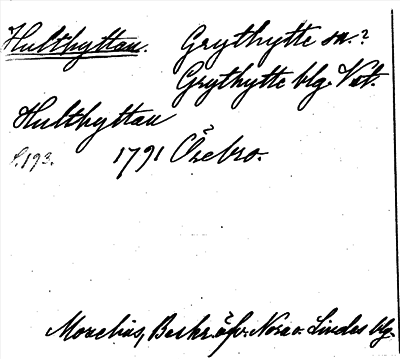 Hulthyttan. Grythytte sn.?
Grythytte blg. Vstm.
Hulthyttan
s. 193. 1791 Örebro.
Morelius, Beskr. öfv. Nora o. Lindes blg.